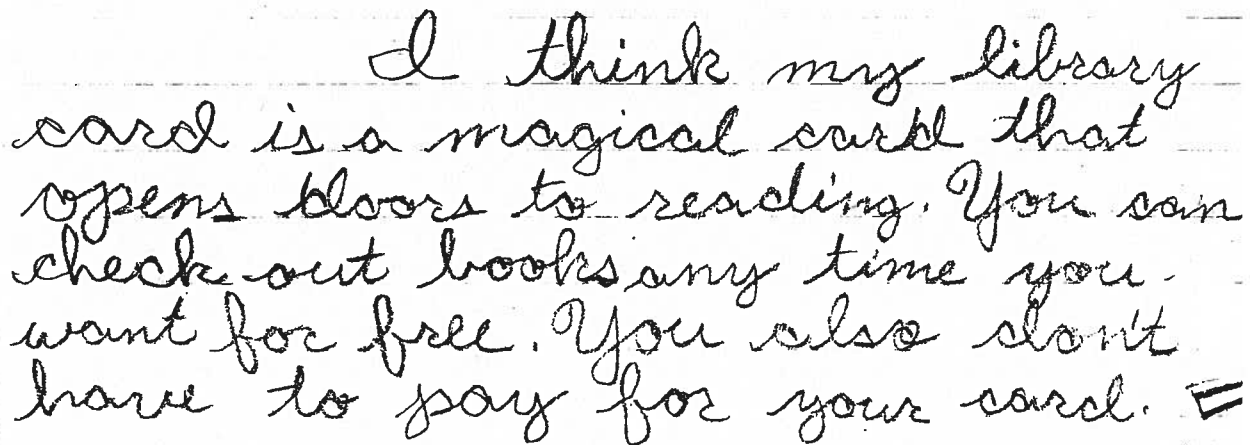 I think my library
card is a magical card that
opens doors to reading. You can
check out books any time you
want for free. You also don't
have to pay for your card. =